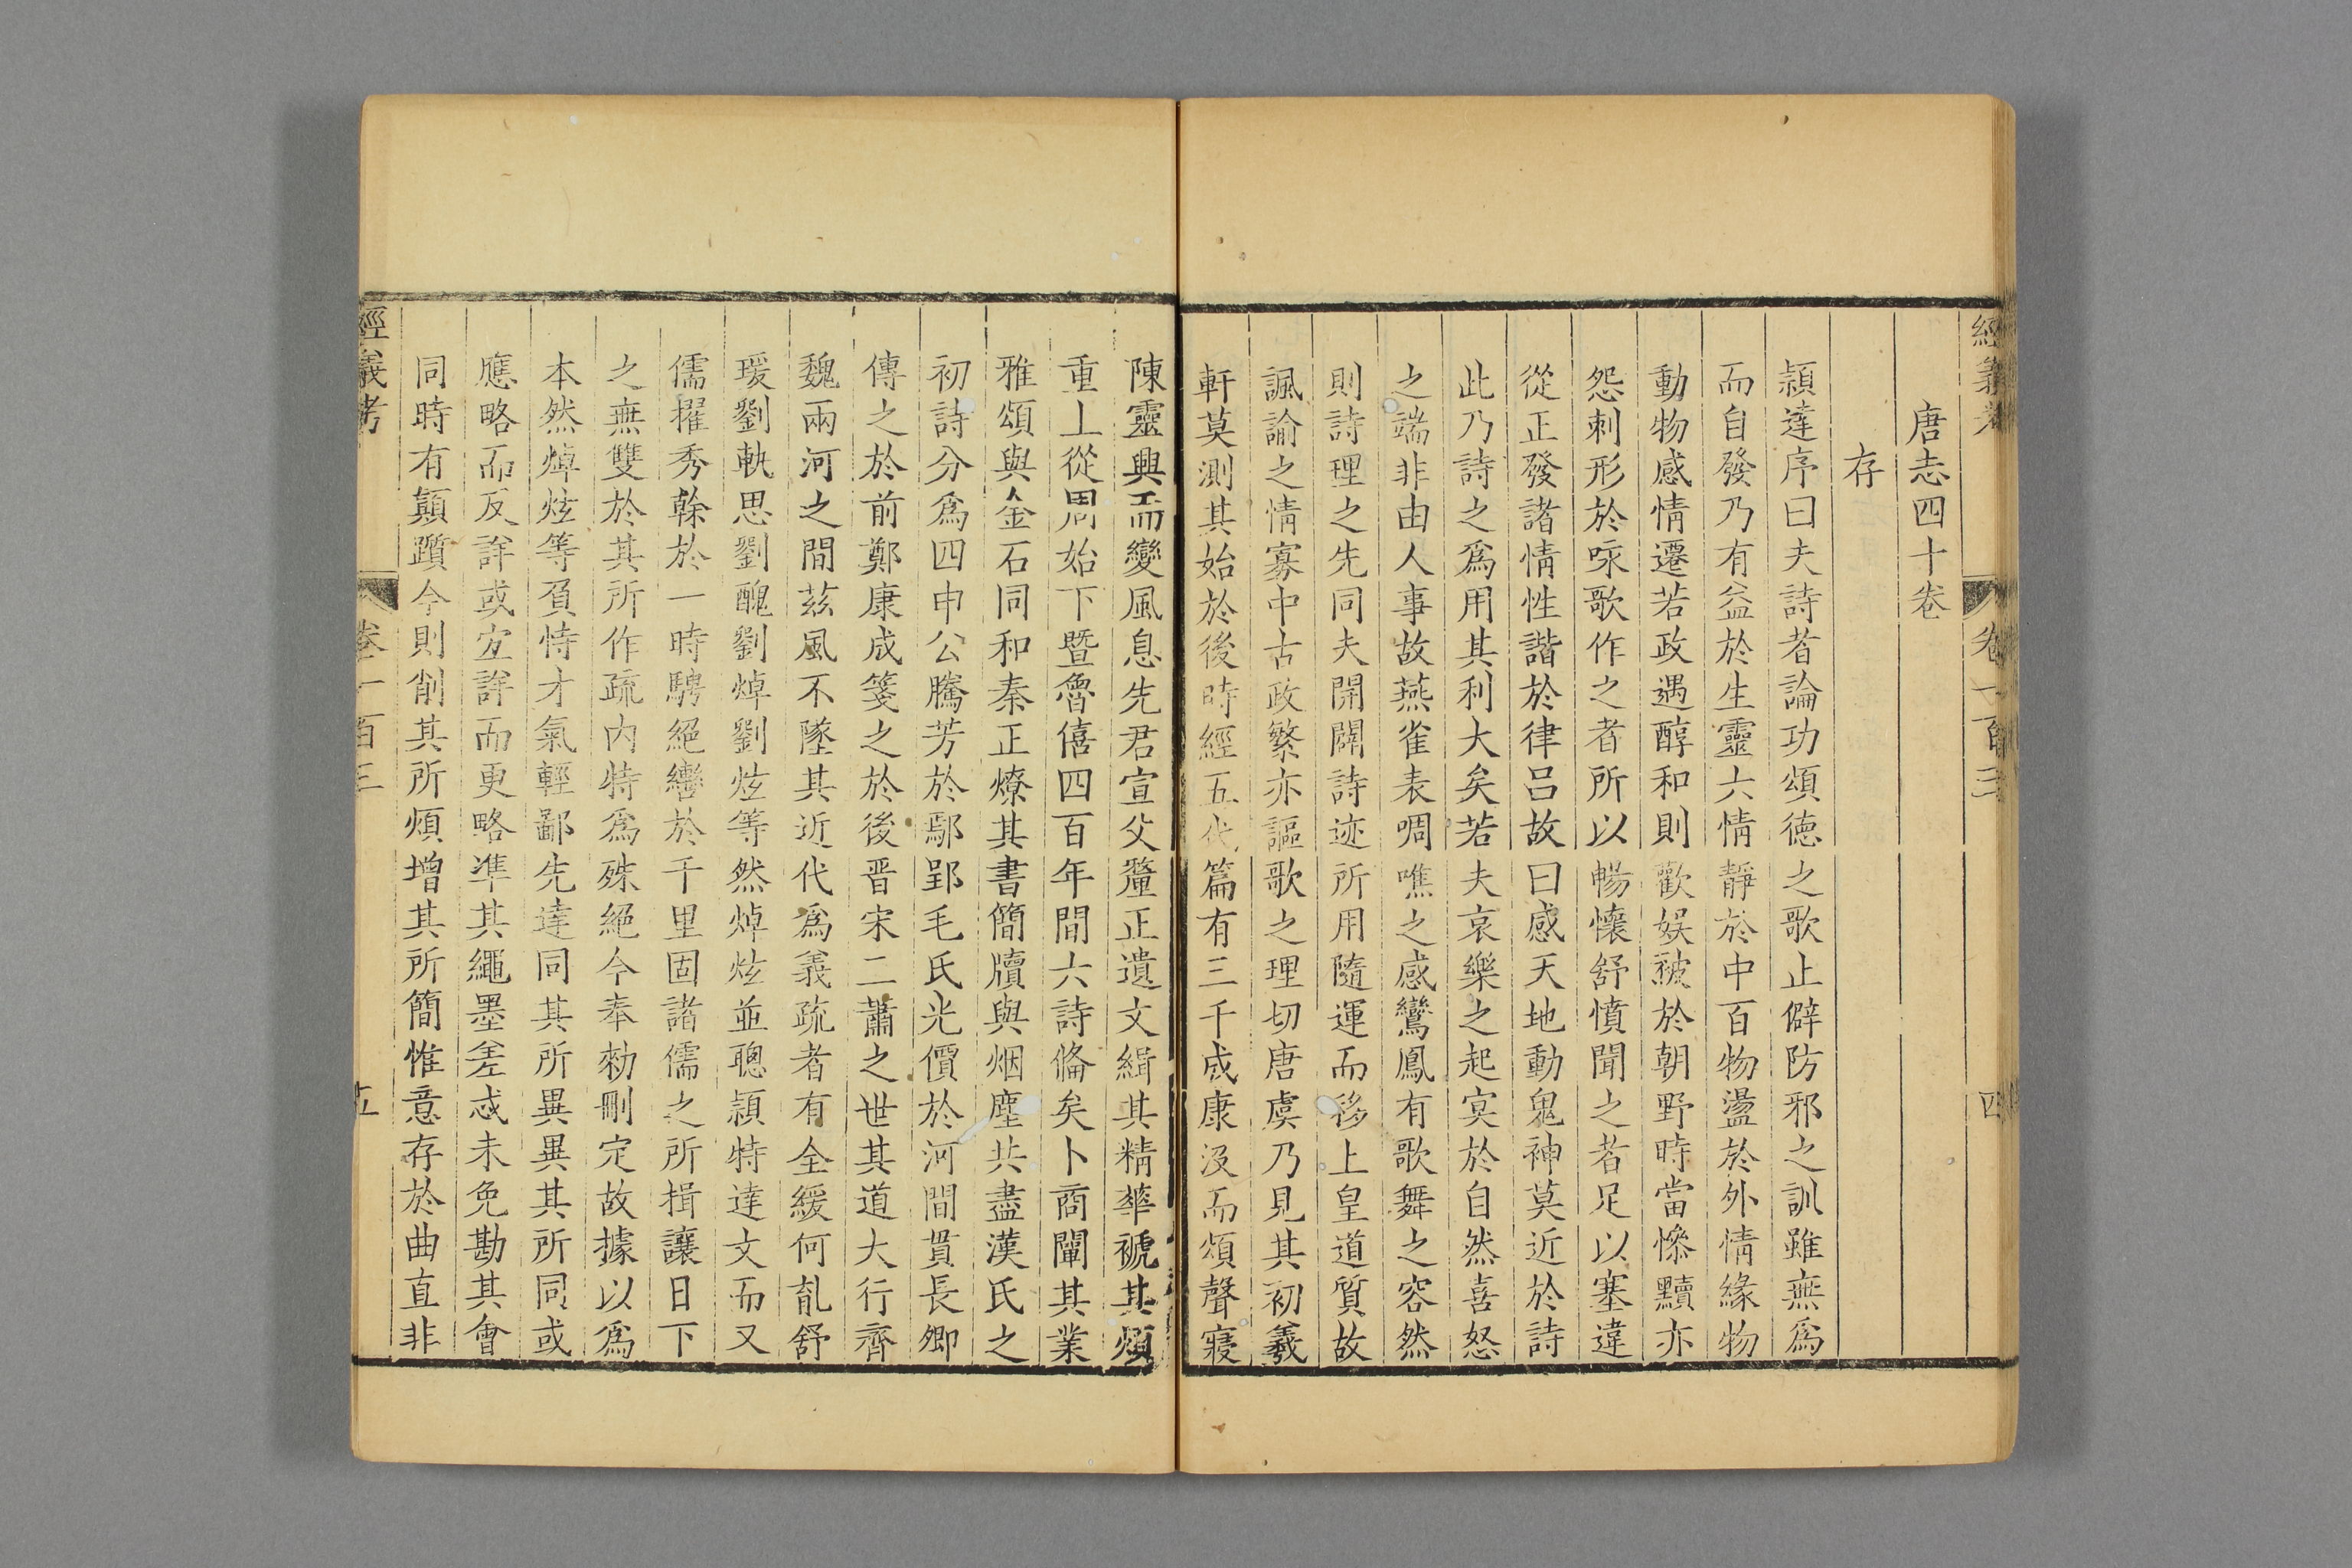 經義考
卷一百三
四
唐志四十卷
存
穎達序曰夫詩者論功頌德之歌止僻防邪之訓雖無爲
而自發乃有益於生靈六情靜於中百物盪於外情緣物
動物感情遷若政遇醇和則歡娛被於朝野時當慘黷亦
怨刺形於咏歌作之者所以暢懷舒憤聞之者足以塞違
從正發諸情性諧於律呂故曰感天地動鬼神莫近於詩
此乃詩之爲用其利大矣若夫哀樂之起冥於自然喜怒
之端非由人事故燕雀表啁噍之感鸞鳳有歌舞之容然
則詩理之先同夫開闢詩迹所用隨運而移上皇道質故
諷諭之情寡中古政繁亦謳歌之理切唐虞乃見其初羲
軒莫測其始於後時經五代篇有三千成康沒而頌聲寢
陳靈興而變風息先君宣父釐正遺文緝其精華褫其煩
重上從周始下暨魯僖四百年間六詩偹矣卜商闡其業
雅頌與金石同和秦正燎其書簡牘與烟塵共盡漢氏之
初詩分爲四申公騰芳於鄢郢毛氏光價於河間貫長卿
傳之於前鄭康成箋之於後晉宋二蕭之世其道大行齊
魏兩河之間茲風不墜其近代爲義疏者有全緩何胤舒
瑗劉軌思劉醜劉焯劉炫等然焯炫並聰穎特達文而又
儒擢秀幹於一時騁絕轡於千里固諸儒之所揖讓日下
之無雙於其所作疏内特爲殊絕今奉勑刪定故據以爲
本然焯炫等負恃才氣輕鄙先達同其所異異其所同或
應略而反詳或宜詳而更略準其繩墨差忒未免勘其會
同時有顛躓今則削其所煩增其所簡惟意存於曲直非
經義考
卷一百三
五